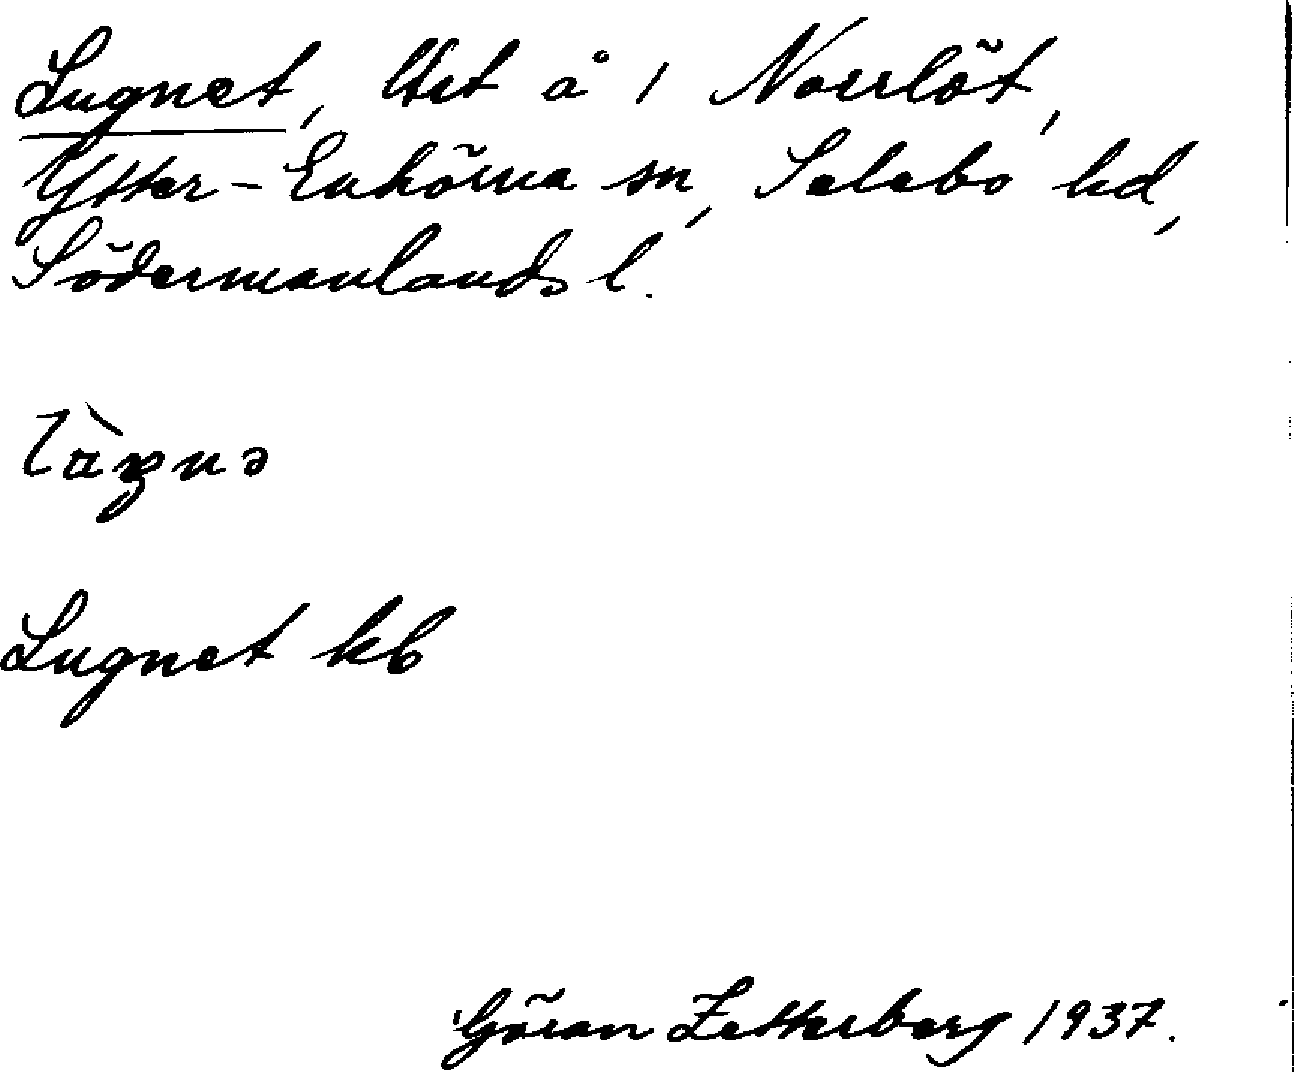 Lugnet, Utst å 1 Norrlöt,
Ytter-Enhörna sn, Selebo hd,
Södermanlands l.
Lugnet kb
Göran Zetterberg 1937.